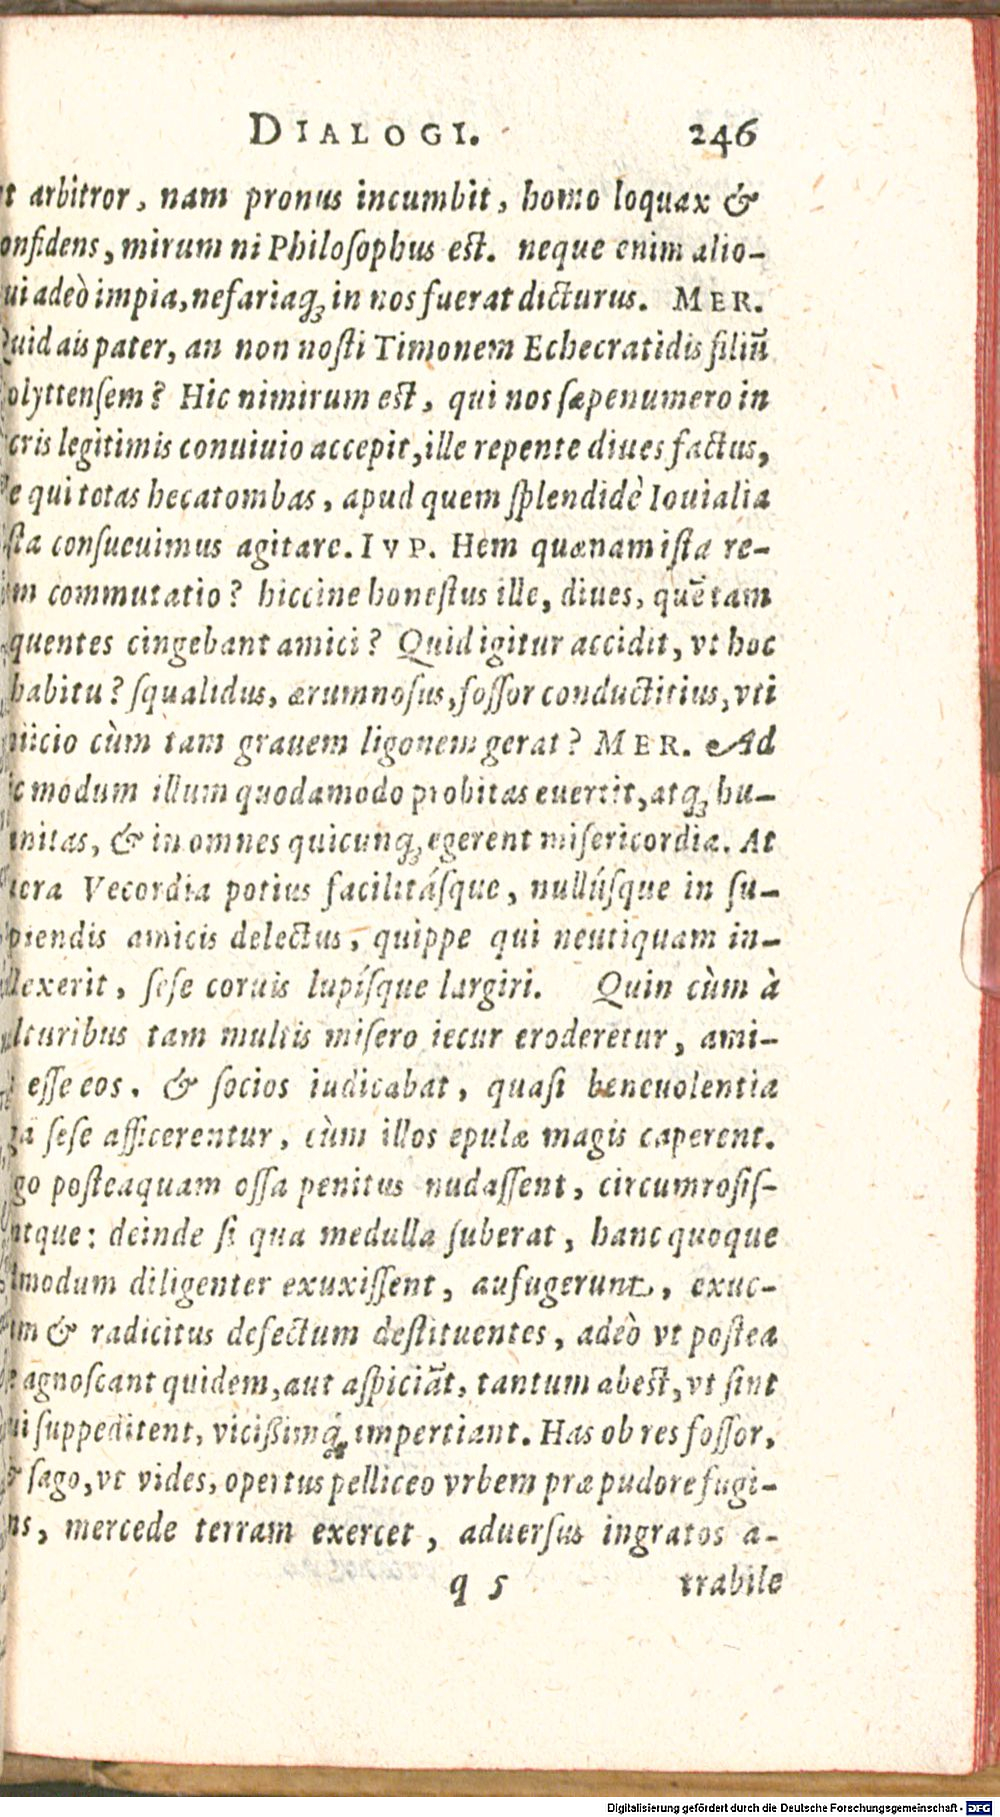 DIALOGI. 246
arbitror, nam pronus incumbit, homo loquax &
onfidens, mirum ni Philosophus est. neque enim alio-
ui adeò impia, nefariaq; in nos fuerat dicturus. MER.
Quid ais pater, an non nosti Timonem Echecratidis filiū
olyttensem? Hic nimirum est, qui nos sæpenumero in
cris legitimis conuiuio accepit, ille repente diues factus,
e qui totas hecatombas, apud quem splendidè Iouialia
sta consueuimus agitare. IVP. Hem quænam ista re-
m commutatio? hiccine honestus ille, diues, quē tam
quentes cingebant amici? Quid igitur accidit, vt hoc
habitu? squalidus, ærumnosus, fossor conductitius, vti
iicio cùm tam grauem ligonem gerat? MER. Ad
c modum illum quodamodo probitas euertit, atq; hu-
nitas, & in omnes quicunq; egerent misericordia. At
era Vecordia potius facilitásque, nullúsque in su-
piendis amicis delectus, quippe qui neutiquam in-
llexerit, sese coruis lupísque largiri. Quin cùm à
lturibus tam multis misero iecur eroderetur, ami-
esse eos. & socios iudicabat, quasi beneuolentia
ga sese afficerentur, cùm illos epulæ magis caperent.
go posteaquam ossa penitus nudassent, circumrosis-
ntque: deinde si qua medulla suberat, hanc quoque
modum diligenter exuxissent, aufugerunt, exuc-
um & radicitus desectum destituentes, adeò vt postea
agnoscant quidem, aut aspiciāt, tantum abest, vt sint
ui suppeditent, vicißimq́; impertiant. Has ob res fossor,
& sago, vt vides, opertus pelliceo vrbem præ pudore fugi-
ns, mercede terram exercet, aduersus ingratos a-
q 5 trabile
Digitalisierung gefördert durch die Deutsche Forschungsgemeinschaft - DFG